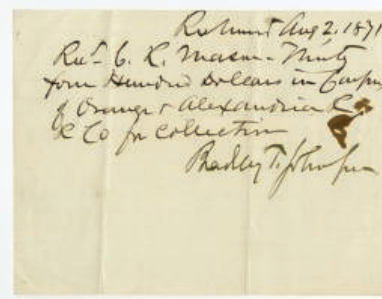 Richmond Aug 2. 1871
Rec^d C. R. Mason - Ninty
four Hundred Dollars in Coupons
of Orange & Alexandria R.
R Co for Collection
Bradley T. Johnson